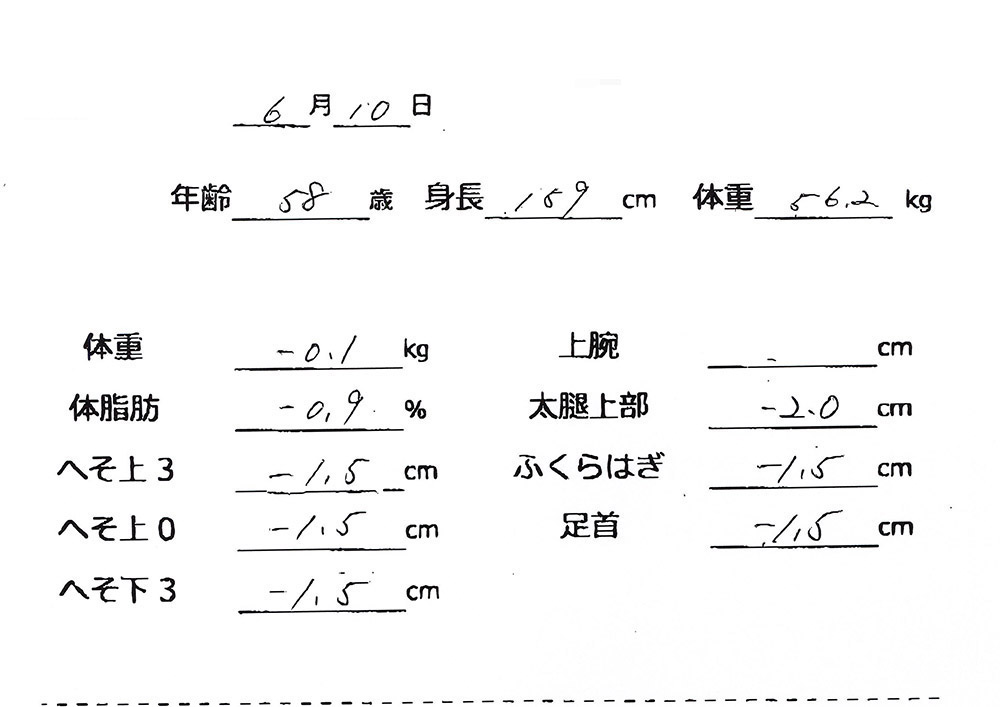 6月10日
年齢 58 歳 身長 159 cm 体重 56.2 kg
体重 -0.1 kg 上腕 cm
体脂肪 -0.9 % 太腿上部 -2.0 cm
へそ上3 -1.5 cm ふくらはぎ -1.5 cm
へそ上0 -1.5 cm 足首 -1.5 cm
へそ下3 -1.5 cm